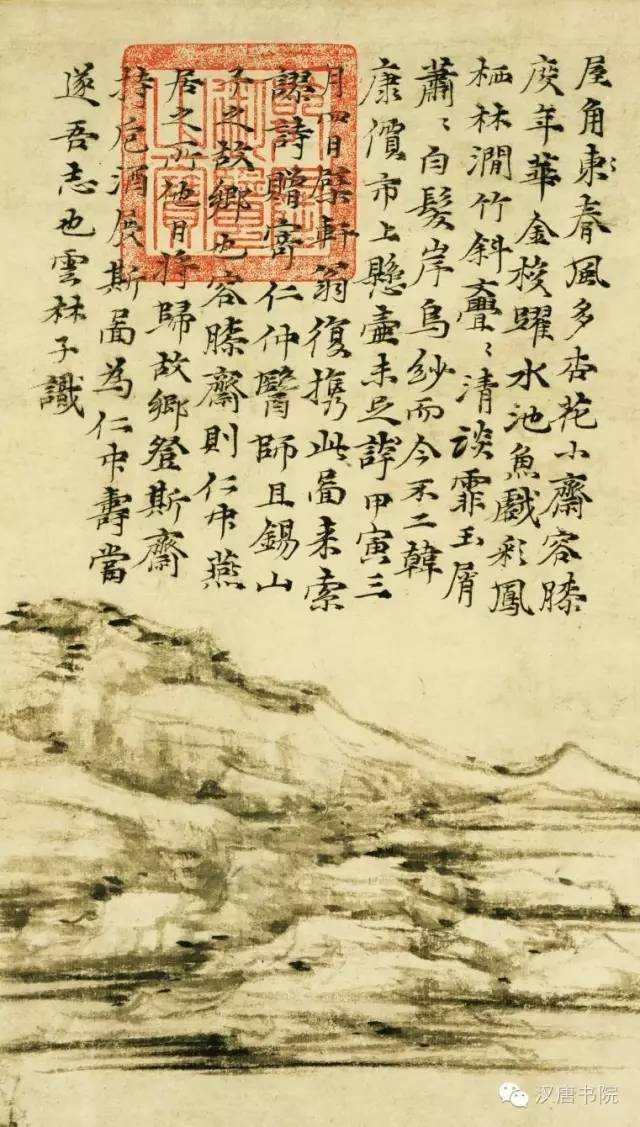 屋角東〻春風多杏花小齋容膝
度年華金梭躍水池魚戲彩鳳
栖林澗竹斜亹〻清談霏玉屑
蕭〻白髮岸烏紗而今不二韓
康價市上懸壺未足誇甲寅三
月四日檗軒翁復携此啚来索
謬詩贈寄仁仲醫師且錫山
予之故鄉也容膝齋則仁中燕
居之所他日將歸故鄉登斯齋
持卮酒展斯啚為仁中壽當
遂吾志也雲林子識
汉唐书院